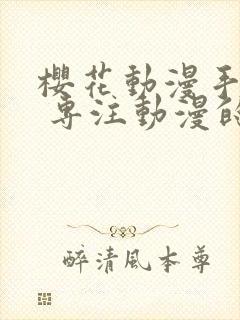 櫻花動漫
專注動漫
醉清風本尊